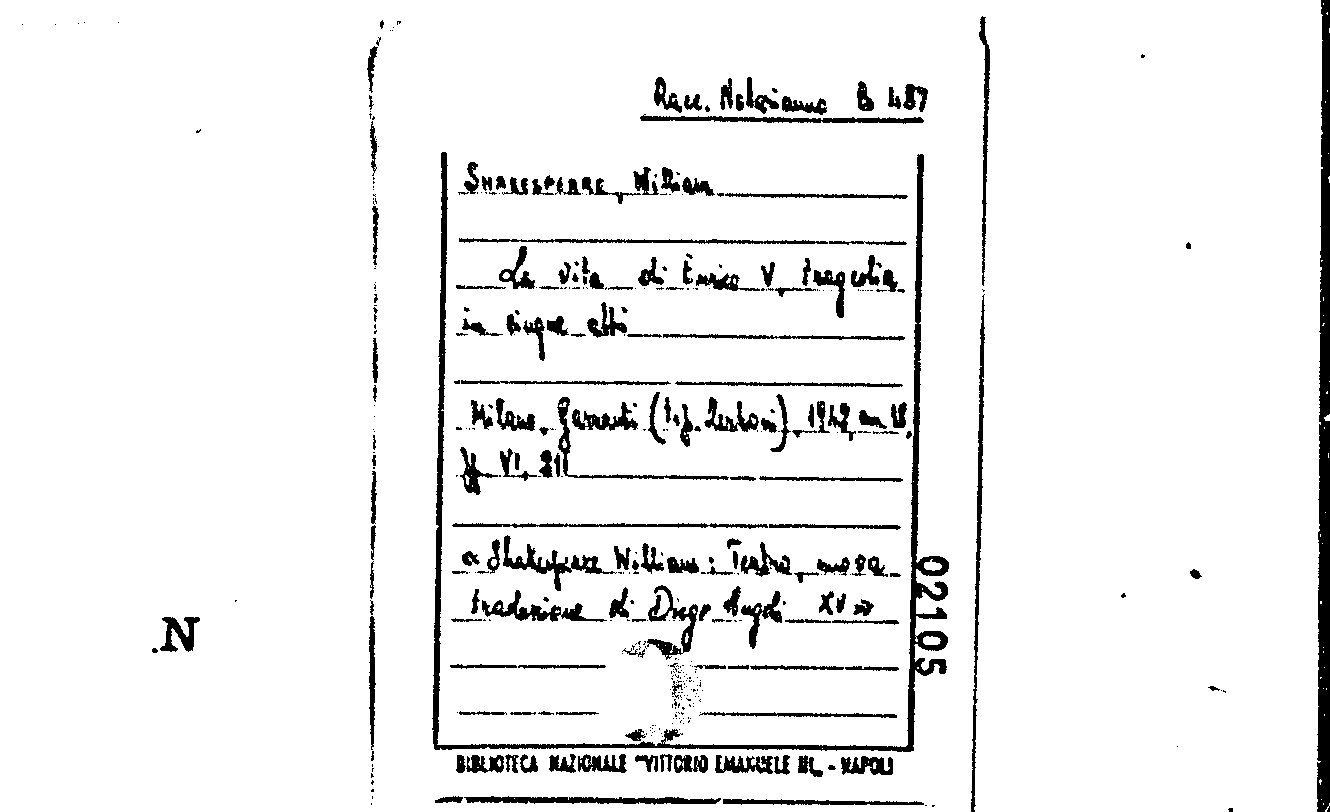 Racc. Notarianno B 487
SHAKESPEARE, William
La vita di Enrico V, tragedia
in cinque atti
Milano, Garzanti (tip. Zerboni), 1942, cm 18,
pp. VI, 211
« Shakespeare William: Teatro, nuova
traduzione di Diego Angeli XV »
02105
N
BIBLIOTECA NAZIONALE "VITTORIO EMANUELE III„ - NAPOLI